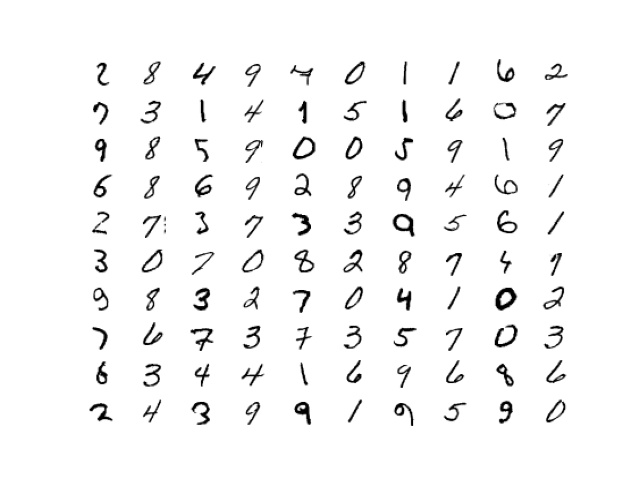 2 8 4 9 7 0 1 1 6 2
7 3 1 4 1 5 1 6 0 7
9 8 5 9 0 0 5 9 1 9
6 8 6 9 2 8 9 4 6 1
2 7 3 7 3 3 9 5 6 1
3 0 7 0 8 2 8 7 4 9
9 8 3 2 7 0 4 1 0 2
7 6 7 3 7 3 5 7 0 3
6 3 4 4 1 6 9 6 8 6
2 4 3 9 9 1 9 5 9 0